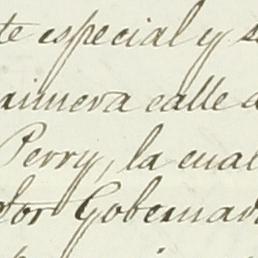 te especial y s
rimera calle d
Perry, la cual
tor Gobernad